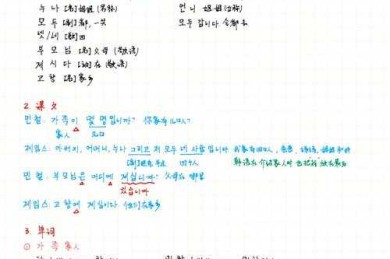 누나 [名]姐姐(男称)
언니 姐姐(女称)
모두 [副]都,一共
모두입니다
넷/네 [数]四
부모님 [名]父母(敬语)
계시다 [动]在(敬语)
고향 [名]家乡
2. 课文
민철: 가족이 몇 명입니까? 你家有几口人?
家人 几口
제임스: 아버지, 어머니, 누나 그리고 저 모두 네 사람입니다
민철: 부모님은 어디에 계십니까? 父母在哪里
있습니다
제임스: 고향에 계십니다 他们在家乡
3. 单词
① 가족 家人